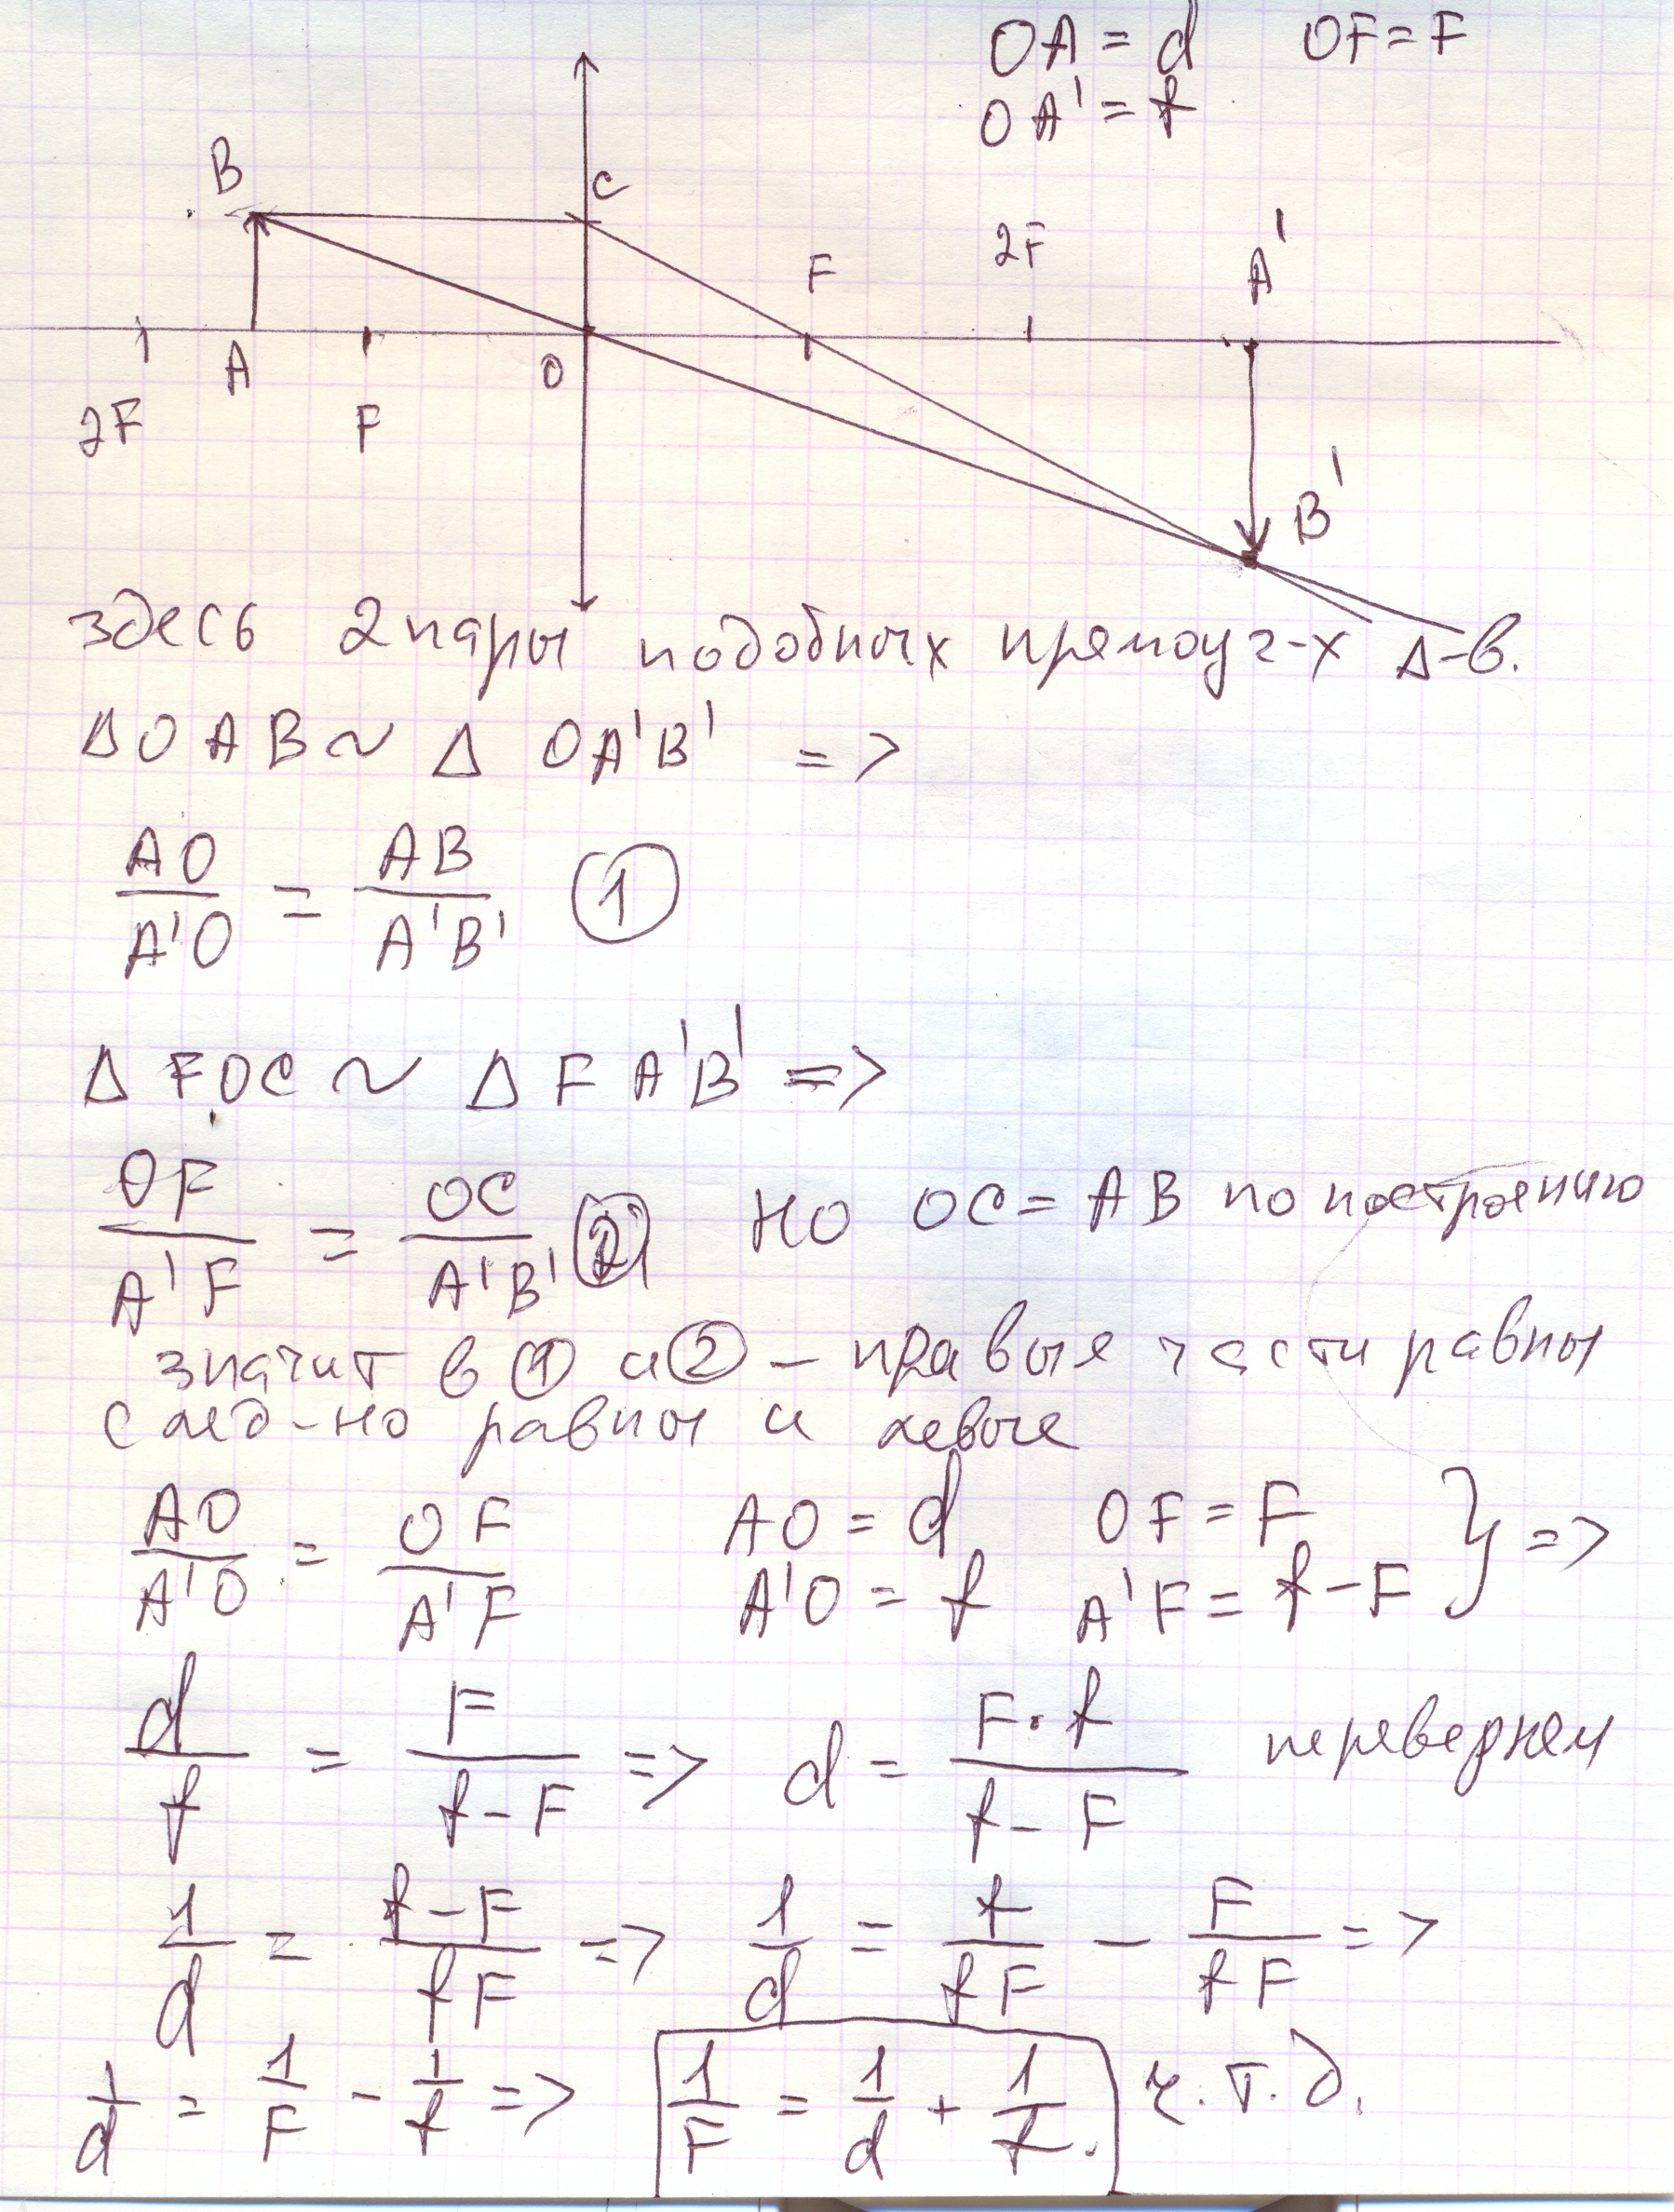 OA = d OF = F
OA' = f
B C
2F A'
F
A O
2F F
B'
здесь 2 пары подобных прямоуг-х Δ-в.
Δ OAB ~ Δ OA'B' =>
AO/A'O = AB/A'B' ①
Δ FOC ~ Δ FA'B' =>
OF/A'F = OC/A'B' ② но OC = AB по построению
значит в ① и ② – правые части равны
след-но равны и левые
AO/A'O = OF/A'F AO = d OF = F } =>
A'O = f A'F = f – F
d/f = F/(f – F) => d = F · f/(f – F) перевернем
1/d = (f – F)/fF => 1/d = f/fF – F/fF =>
1/d = 1/F – 1/f => 1/F = 1/d + 1/f. ч.т.д.